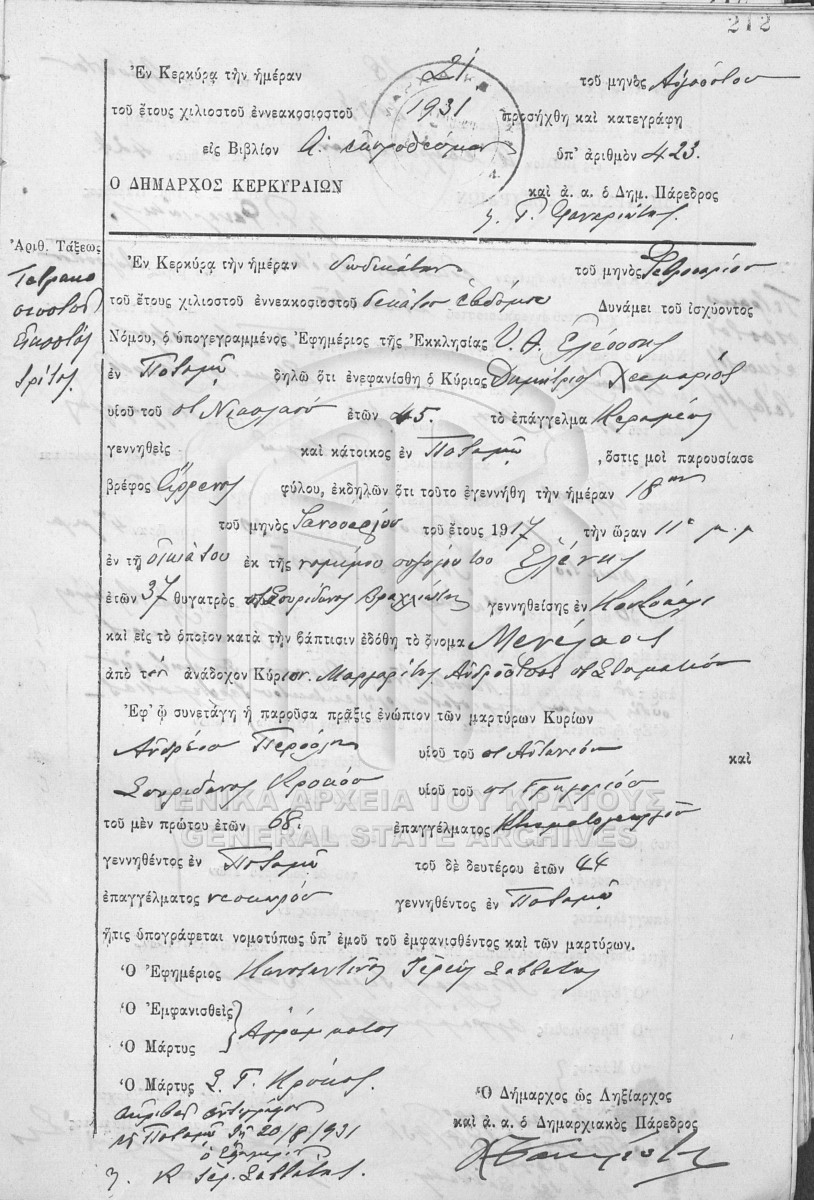 212
Ἐν Κερκύρᾳ τὴν ἡμέραν 21 τοῦ μηνὸς Αὐγούστου
τοῦ ἔτους χιλιοστοῦ ἐννεακοσιοστοῦ 1931 προσήχθη καὶ κατεγράφη
εἰς Βιβλίον Α. ἐκπροθέσμων ὑπ' ἀριθμὸν 423.
Ο ΔΗΜΑΡΧΟΣ ΚΕΡΚΥΡΑΙΩΝ καὶ ἀ. ἀ. ὁ Δημ. Πάρεδρος
Γ.
Ἀριθ. Τάξεως
Τετρακο
σιοστὸν
εἰκοστὸν
τρίτον
Ἐν Κερκύρᾳ τὴν ἡμέραν δωδεκάτην τοῦ μηνὸς Φεβρουαρίου
τοῦ ἔτους χιλιοστοῦ ἐννεακοσιοστοῦ δεκάτου ἑβδόμου Δυνάμει τοῦ ἰσχύοντος
Νόμου, ὁ ὑπογεγραμμένος Ἐφημέριος τῆς Ἐκκλησίας Υ. Θ. Ἐλεούσης
ἐν Ποταμῷ δηλῶ ὅτι ἐνεφανίσθη ὁ Κύριος Δημήτριος Χειμαριὸς
υἱοῦ τοῦ Νικολάου ἐτῶν 45. τὸ ἐπάγγελμα Κεραμεὺς
γεννηθεὶς καὶ κάτοικος ἐν Ποταμῷ , ὅστις μοὶ παρουσίασε
βρέφος ἄρρενος φύλου, ἐκδηλῶν ὅτι τοῦτο ἐγεννήθη τὴν ἡμέραν 18ην
τοῦ μηνὸς Ἰανουαρίου τοῦ ἔτους 1917 τὴν ὥραν 11ην μ.μ
ἐν τῇ οἰκίᾳ του ἐκ τῆς νομίμου συζύγου του Ἑλένης
ἐτῶν 37 θυγατρὸς Σπυρίδωνος Βραχλιώτη γεννηθείσης ἐν
καὶ εἰς τὸ ὁποῖον κατὰ τὴν βάπτισιν ἐδόθη τὸ ὄνομα Μενέλαος
ἀπὸ τὸν ἀνάδοχον Κύριον Μαργαρίτην Ἀνδρούτσον Σταματίου
Ἐφ' ᾧ συνετάγη ἡ παροῦσα πρᾶξις ἐνώπιον τῶν μαρτύρων Κυρίων
Ἀνδρέου Περούλη υἱοῦ τοῦ Ἀντωνίου καὶ
Σπυρίδωνος Κροκου υἱοῦ τοῦ Γρηγορίου
ΓΕΝΙΚΑ ΑΡΧΕΙΑ ΤΟΥ ΚΡΑΤΟΥΣ
τοῦ μὲν πρώτου ἐτῶν 68. ἐπαγγέλματος Κτηματογεωργοῦ
GENERAL STATE ARCHIVES
γεννηθέντος ἐν Ποταμῷ τοῦ δὲ δευτέρου ἐτῶν 44
ἐπαγγέλματος νεωκόρου γεννηθέντος ἐν Ποταμῷ
ἥτις ὑπογράφεται νομοτύπως ὑπ' ἐμοῦ τοῦ ἐμφανισθέντος καὶ τῶν μαρτύρων.
Ὁ Ἐφημέριος Κωνσταντῖνος Ἱερεὺς
Ὁ Ἐμφανισθεὶς
Ὁ Μάρτυς Ἀγράμματοι
Ὁ Μάρτυς Σ. Γ. Κρόκος.
ἀκριβὲς ἀντίγραφον
Ποταμῷ τῇ 20/8/931
ὁ ἐφημέριος
Κ Ἱερ.
Ὁ Δήμαρχος ὡς Ληξίαρχος
καὶ ἀ. ἀ. ὁ Δημαρχιακὸς Πάρεδρος